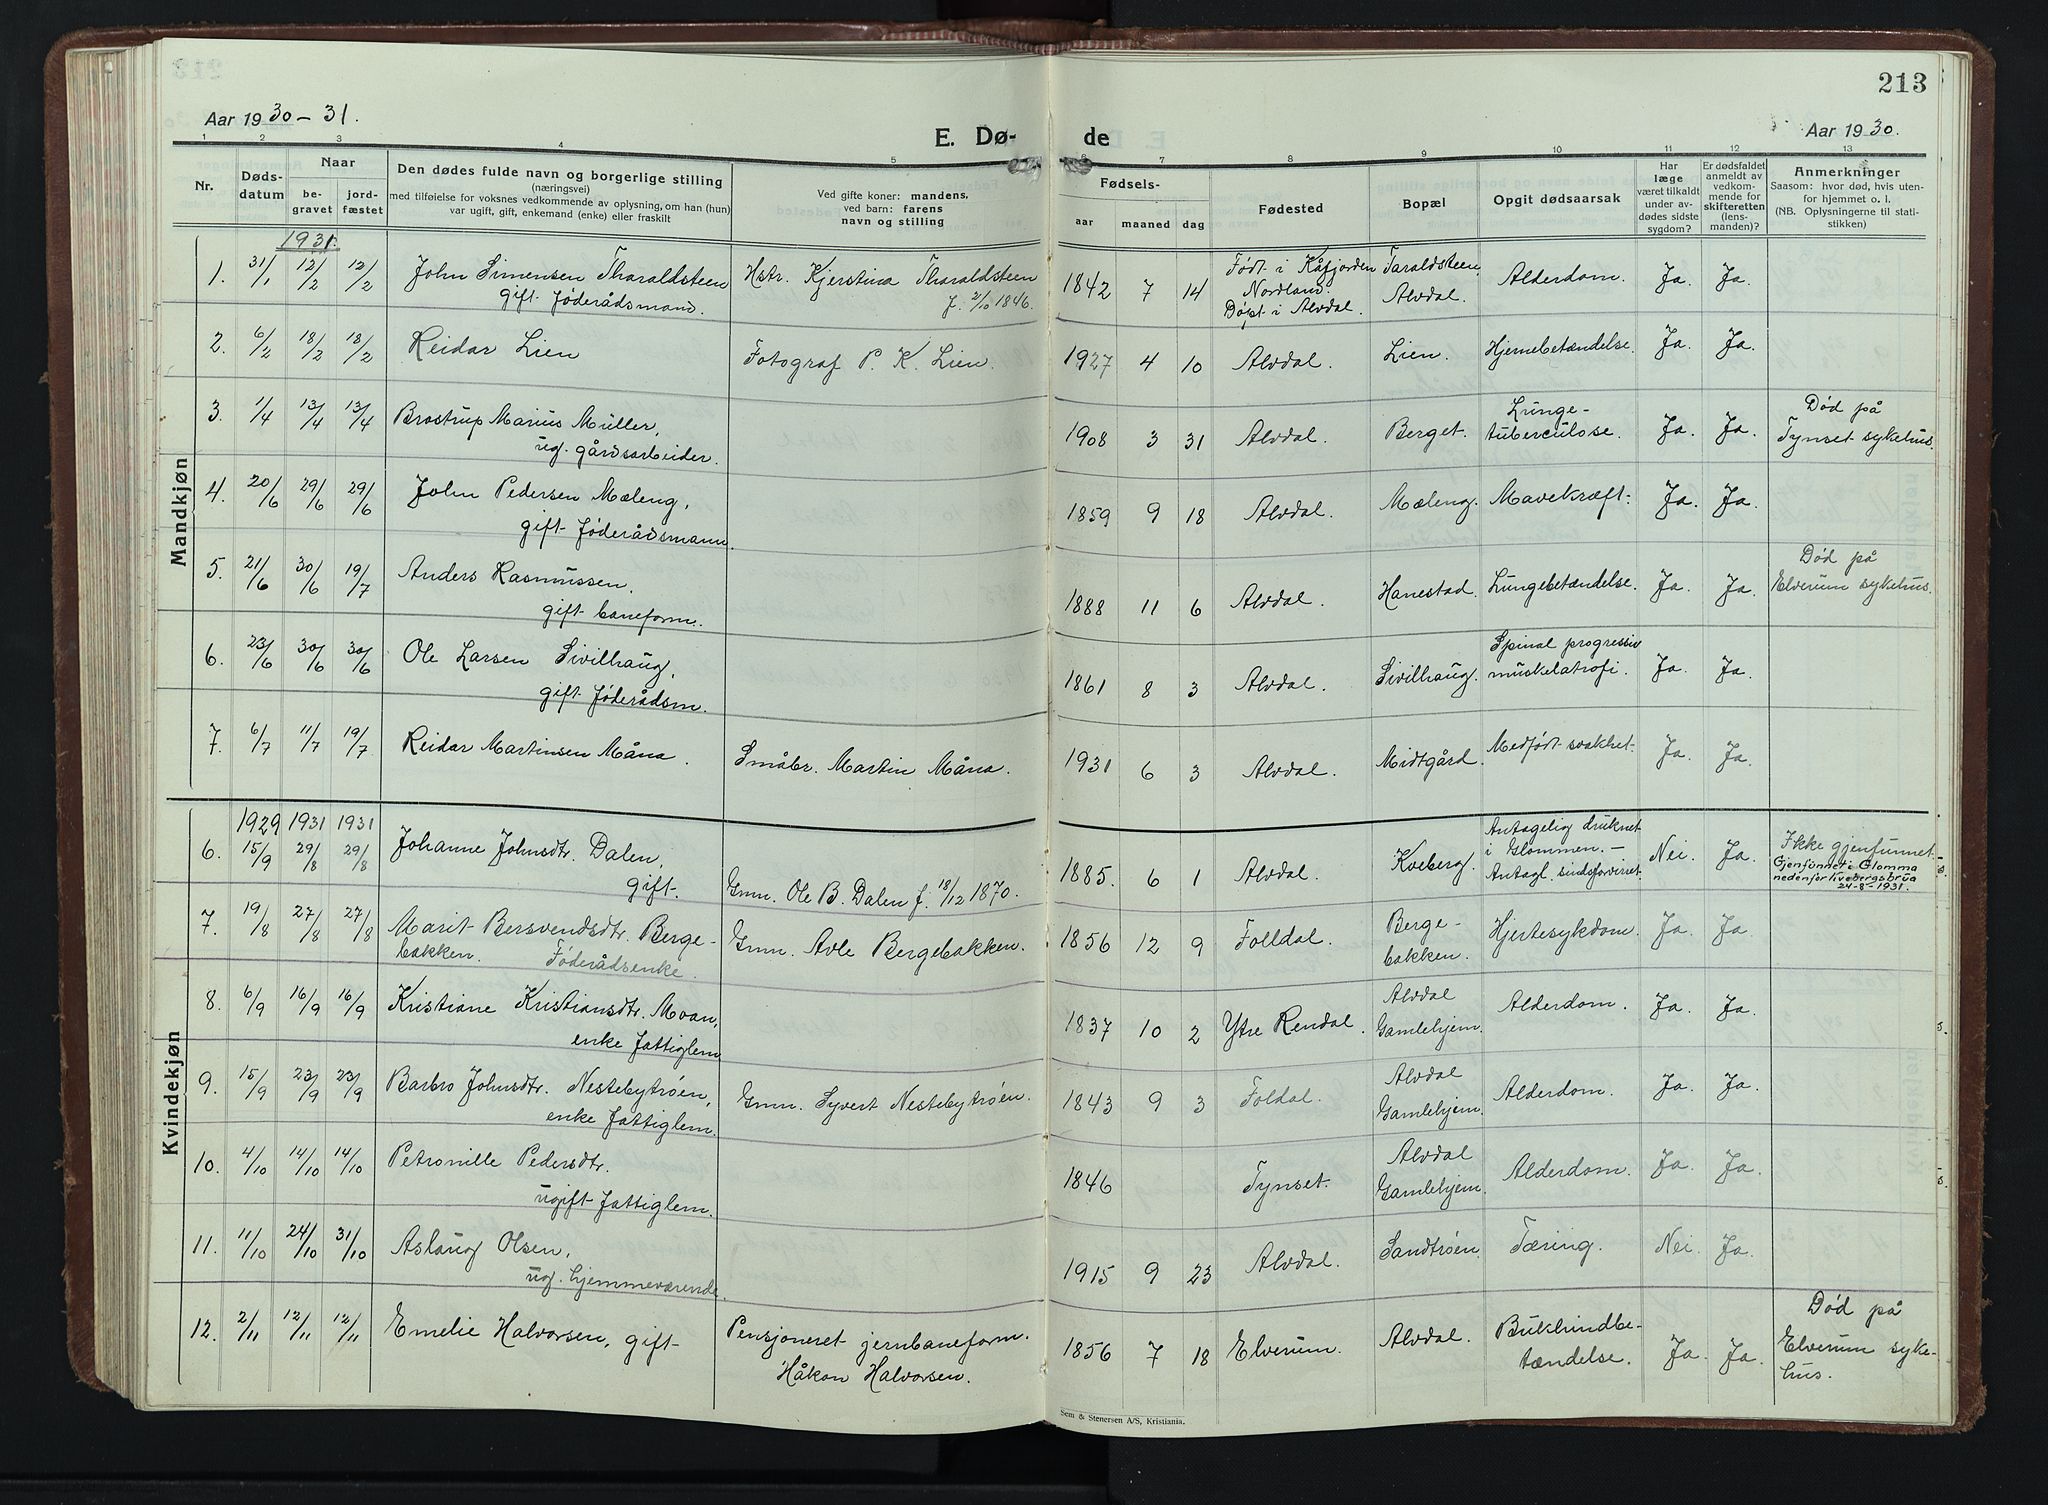 213
Aar 1930-31.
E. Dø- de
Aar 1930.
1 2 3 4 5 6 7 8 9 10 11 12 13
Nr. Døds-datum Naar be-gravet jord-fæstet Den dødes fulde navn og borgerlige stilling (næringsvei) med tilføielse for voksnes vedkommende av oplysning, om han (hun) var ugift, gift, enkemand (enke) eller fraskilt Ved gifte koner: mandens, ved barn: farens navn og stilling Fødsels- aar maaned dag Fødested Bopæl Opgit dødsaarsak Har læge været tilkaldt under av-dødes sidste sygdom? Er dødsfaldet anmeldt av vedkom-mende for skifteretten (lens-manden)? Anmerkninger Saasom: hvor død, hvis uten-for hjemmet o. l. (NB. Oplysningerne til stati-stikken)
Mandkjøn
1931.
1. 31/1 12/2 12/2 John Simensen Tharaldsteen gift føderådsmand. Hstr. Kjerstina Tharaldsteen f. 2/10 1846. 1842 7 14 Født i Kåfjorden Nordland. Døpt i Alvdal. Taraldsteen, Alvdal. Alderdom. Ja. Ja.
2. 6/2 18/2 18/2 Reidar Lien Fotograf P. K. Lien. 1927 4 10 Alvdal. Lien. Hjernebetændelse. Ja. Ja.
3. 1/4 13/4 13/4 Brostrup Marius Müller, ug. gårdsarbeider. 1908 3 31 Alvdal. Berget. Lunge-tuberculose. Ja. Ja. Død på Tynset sykehus.
4. 20/6 29/6 29/6 John Pedersen Mæleng, gift føderådsmann. 1859 9 18 Alvdal. Mæleng. Mavekræft. Ja. Ja.
5. 21/6 30/6 19/7 Anders Rasmussen, gift baneform. 1888 11 6 Alvdal. Hanestad. Lungebetændelse. Ja. Ja. Død på Elverum sykehus.
6. 23/6 30/6 30/6 Ole Larsen Sivilhaug, gift føderådsm. 1861 8 3 Alvdal. Sivilhaug. Spinal progressiv muskelatrofi. Ja. Ja.
7. 6/7 11/7 19/7 Reidar Martinsen Måna. Småbr. Martin Måna. 1931 6 3 Alvdal. Midtgård. Medfødt svakhet. Ja. Ja.
Kvindekjøn
1929 1931 1931
6. 15/9 29/8 29/8 Johanne Johnsdtr. Dalen, gift. Gmn. Ole B. Dalen f. 18/12 1870. 1885. 6 1 Alvdal. Kveberg. Antagelig druknet i Glommen. - Antagl. sindsforvirret. Nei. Ja. Ikke gjenfunnet. Gjenfunnet i Glomma nedenfor Kvebergsbrua 24-8-1931.
7. 19/8 27/8 27/8 Marit Bersvendsdtr. Berge-bakken. Føderådsenke. Gmn. Avle Bergebakken. 1856 12 9 Folldal. Berge-bakken. Hjertesykdom. Ja. Ja.
8. 6/9 16/9 16/9 Kristiane Kristiansdtr. Moan, enke fattiglem 1837 10 2 Ytre Rendal. Alvdal Gamlehjem. Alderdom. Ja. Ja.
9. 15/9 23/9 23/9 Barbro Johnsdtr. Nestebytrøen, enke fattiglem. Gmn. Syvert Nestebytrøen. 1843 9 3 Foldal. Alvdal Gamlehjem. Alderdom. Ja. Ja.
10. 4/10 14/10 14/10 Petronille Pedersdtr. ugift fattiglem. 1846 Tynset. Alvdal Gamlehjem. Alderdom. Ja. Ja.
11. 11/10 24/10 31/10 Aslaug Olsen, ug. hjemmeværende. 1915 9 23 Alvdal. Sandtrøen. Tæring. Nei. Ja.
12. 2/11 12/11 12/11 Emelie Halvorsen, gift Pensjoneret jernbaneform. Håkon Halvorsen. 1856 7 18 Elverum. Alvdal. Bukhindbe-tændelse. Ja. Ja. Død på Elverum syke-hus.
Sem & Stenersen A/S, Kristiania.